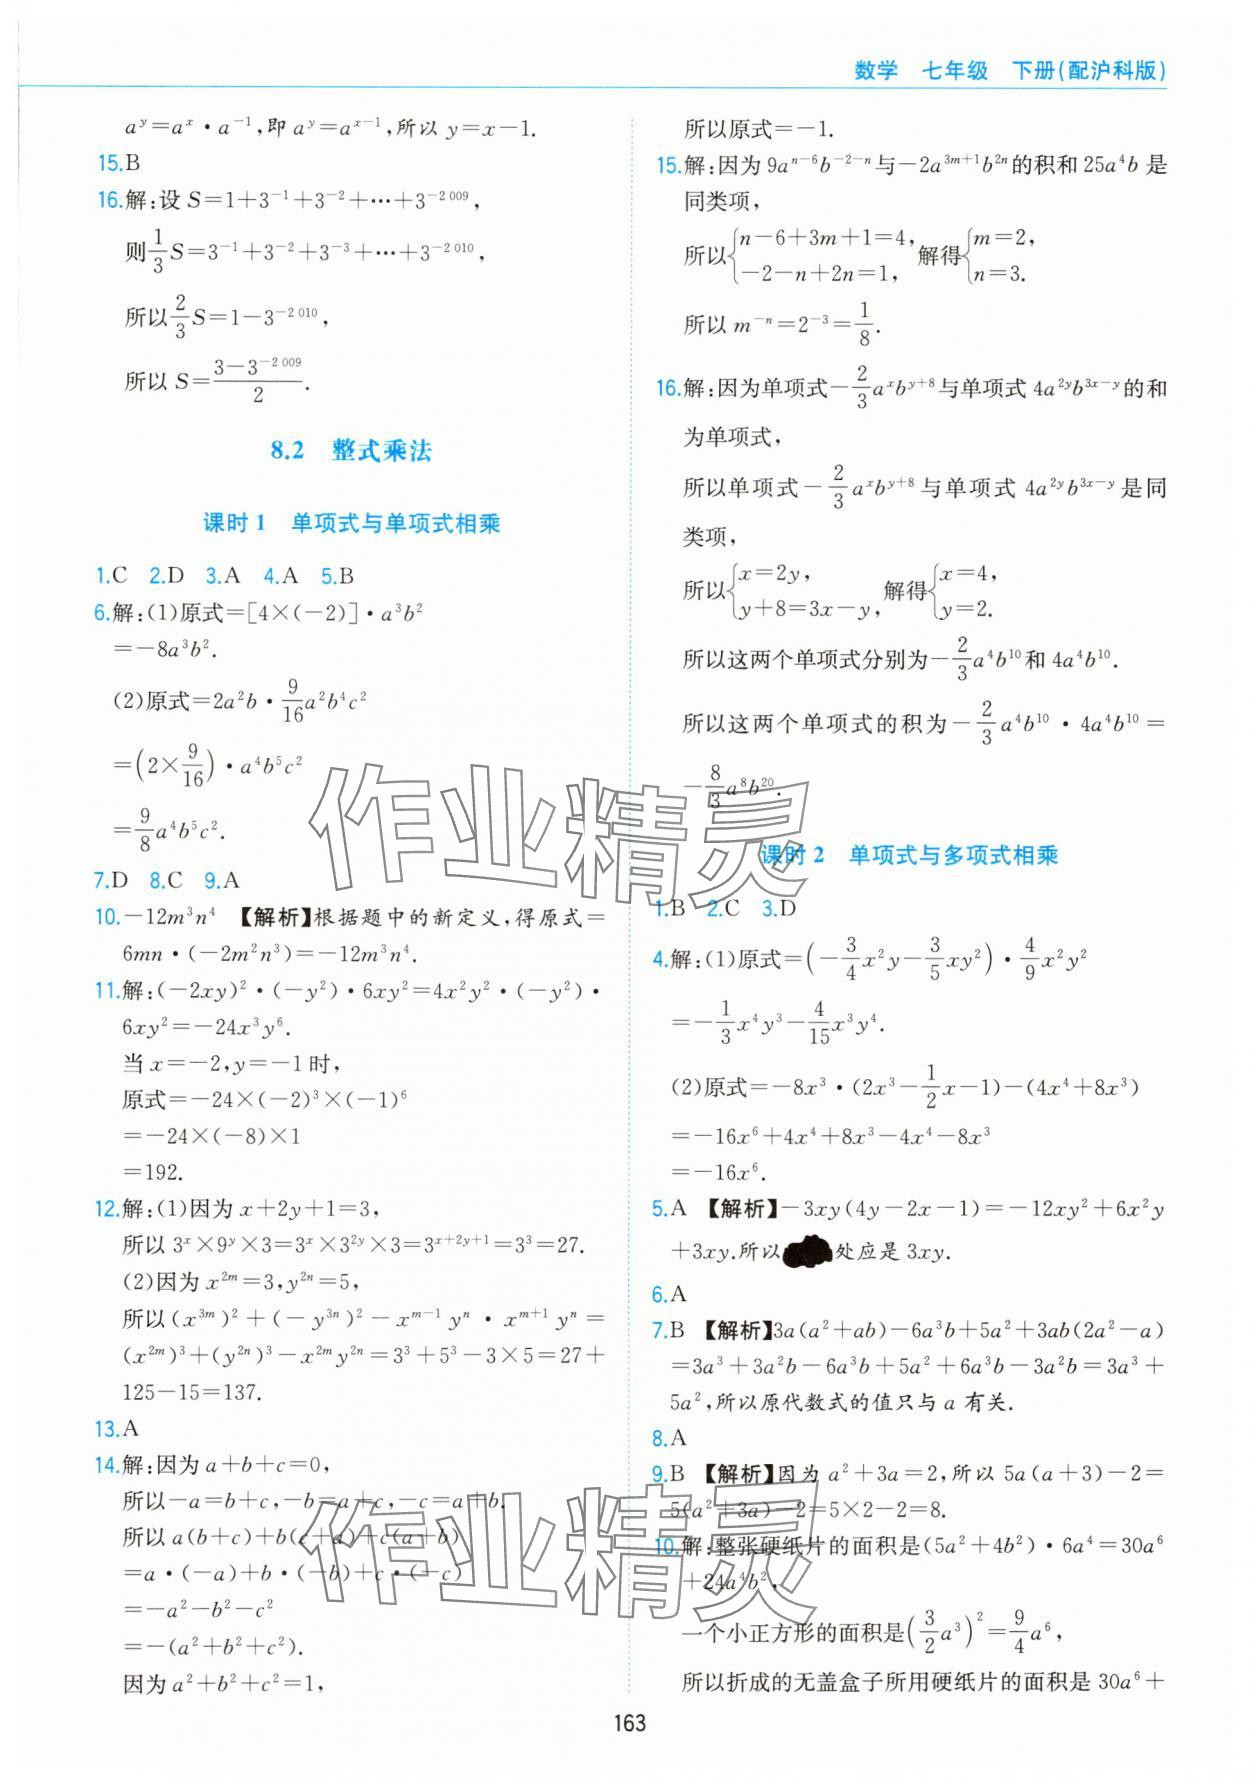 数学 七年级 下册(配沪科版)
a^y=a^x·a^{-1},即 a^y=a^{x-1},所以 y=x-1.
15.B
16.解:设 S=1+3^{-1}+3^{-2}+…+3^{-2 009},
则\frac{1}{3}S=3^{-1}+3^{-2}+3^{-3}+…+3^{-2 010},
所以\frac{2}{3}S=1-3^{-2 010},
所以 S=\frac{3-3^{-2 009}}{2}.
8.2 整式乘法
课时1 单项式与单项式相乘
1.C 2.D 3.A 4.A 5.B
6.解:(1)原式=[4×(-2)]·a^3b^2
=-8a^3b^2.
(2)原式=2a^2b·\frac{9}{16}a^2b^4c^2
=(2×\frac{9}{16})·a^4b^5c^2
=\frac{9}{8}a^4b^5c^2.
7.D 8.C 9.A
10.-12m^3n^4 【解析】根据题中的新定义,得原式=
6mn·(-2m^2n^3)=-12m^3n^4.
11.解:(-2xy)^2·(-y^2)·6xy^2=4x^2y^2·(-y^2)·
6xy^2=-24x^3y^6.
当 x=-2,y=-1 时,
原式=-24×(-2)^3×(-1)^6
=-24×(-8)×1
=192.
12.解:(1)因为 x+2y+1=3,
所以 3^x×9^y×3=3^x×3^{2y}×3=3^{x+2y+1}=3^3=27.
(2)因为 x^{2m}=3,y^{2n}=5,
所以(x^{3m})^2+(-y^{3n})^2-x^{m-1}y^n·x^{m+1}y^n=
(x^{2m})^3+(y^{2n})^3-x^{2m}y^{2n}=3^3+5^3-3×5=27+
125-15=137.
13.A
14.解:因为 a+b+c=0,
所以-a=b+c,-b=a+c,-c=a+b.
所以 a(b+c)+b(c+a)+c(a+b)
=a·(-a)+b·(-b)+c·(-c)
=-a^2-b^2-c^2
=-(a^2+b^2+c^2).
因为 a^2+b^2+c^2=1,
所以原式=-1.
15.解:因为 9a^{n-6}b^{-2-n}与-2a^{3m+1}b^{2n}的积和 25a^4b 是
同类项,
所以{n-6+3m+1=4, -2-n+2n=1, 解得{m=2, n=3.
所以 m^{-n}=2^{-3}=\frac{1}{8}.
16.解:因为单项式-\frac{2}{3}a^xb^{y+8}与单项式 4a^{2y}b^{3x-y}的和
为单项式,
所以单项式-\frac{2}{3}a^xb^{y+8}与单项式 4a^{2y}b^{3x-y}是同
类项,
所以{x=2y, y+8=3x-y, 解得{x=4, y=2.
所以这两个单项式分别为-\frac{2}{3}a^4b^{10}和 4a^4b^{10}.
所以这两个单项式的积为-\frac{2}{3}a^4b^{10}·4a^4b^{10}=
-\frac{8}{3}a^8b^{20}.
课时2 单项式与多项式相乘
1.B 2.C 3.D
4.解:(1)原式=(-\frac{3}{4}x^2y-\frac{3}{5}xy^2)·\frac{4}{9}x^2y^2
=-\frac{1}{3}x^4y^3-\frac{4}{15}x^3y^4.
(2)原式=-8x^3·(2x^3-\frac{1}{2}x-1)-(4x^4+8x^3)
=-16x^6+4x^4+8x^3-4x^4-8x^3
=-16x^6.
5.A 【解析】-3xy(4y-2x-1)=-12xy^2+6x^2y
+3xy.所以 处应是 3xy.
6.A
7.B 【解析】3a(a^2+ab)-6a^3b+5a^2+3ab(2a^2-a)
=3a^3+3a^2b-6a^3b+5a^2+6a^3b-3a^2b=3a^3+
5a^2,所以原代数式的值只与 a 有关.
8.A
9.B 【解析】因为 a^2+3a=2,所以 5a(a+3)-2=
5(a^2+3a)-2=5×2-2=8.
10.解:整张硬纸片的面积是(5a^2+4b^2)·6a^4=30a^6
+24a^4b^2,
一个小正方形的面积是(\frac{3}{2}a^3)^2=\frac{9}{4}a^6,
所以折成的无盖盒子所用硬纸片的面积是 30a^6+
163
作业精灵
作业精灵